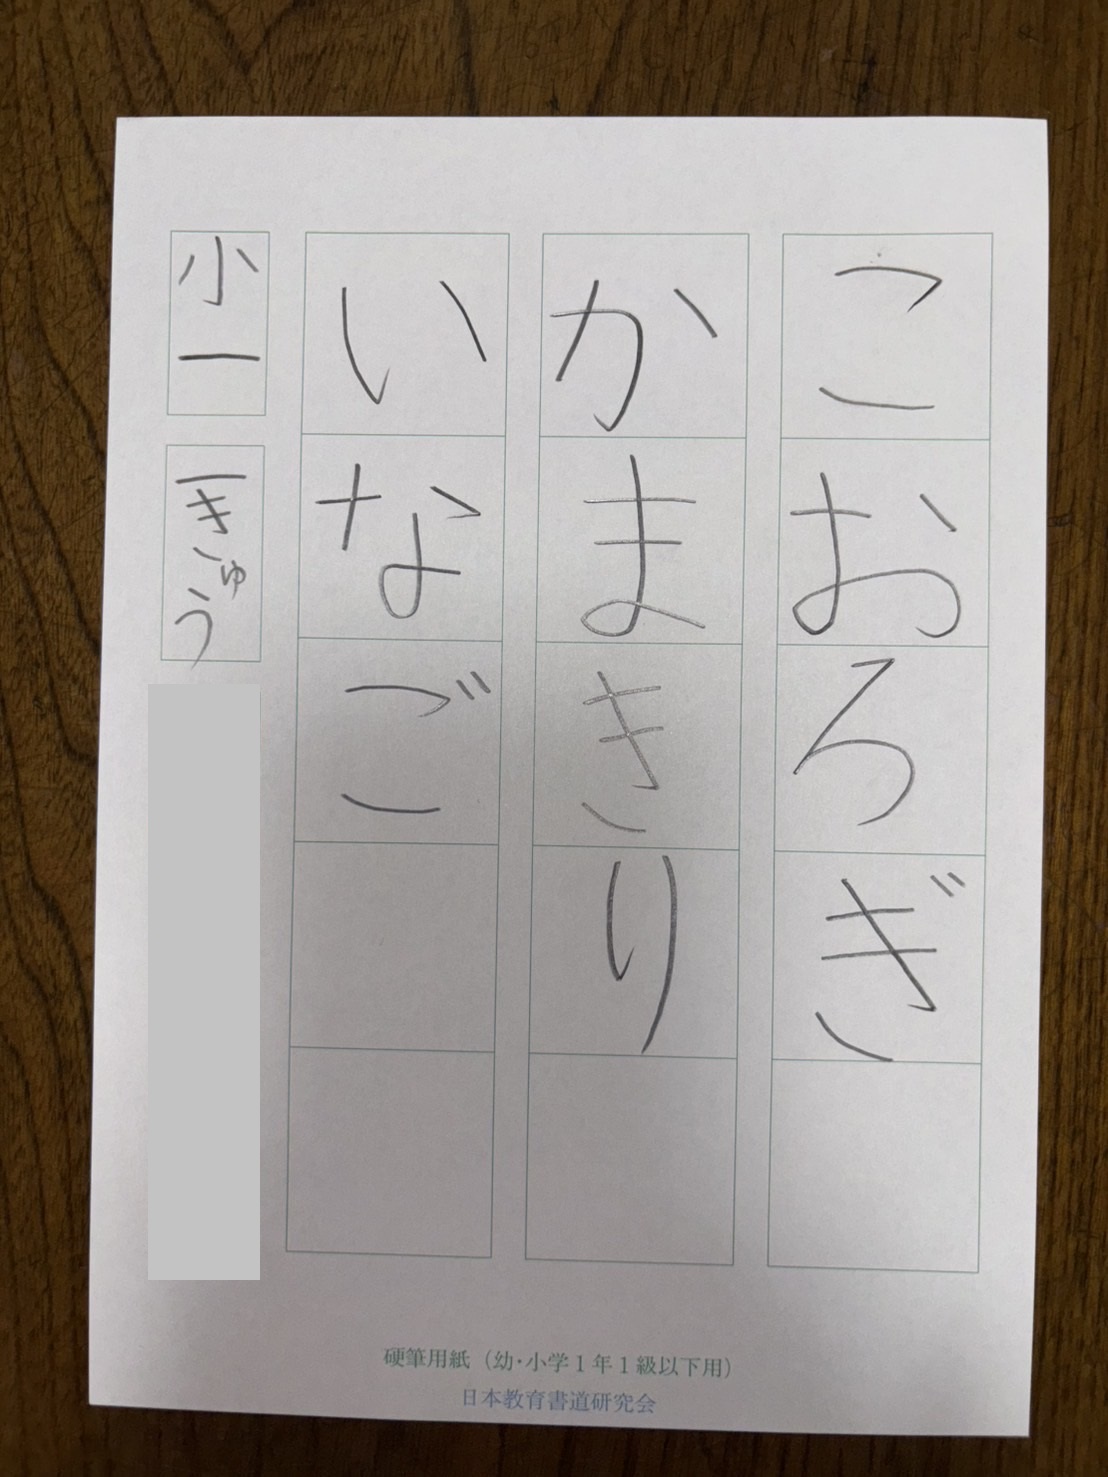 こおろぎ
かまきり
いなご
小一
一きゅう
硬筆用紙（幼・小学１年１級以下用）
日本教育書道研究会